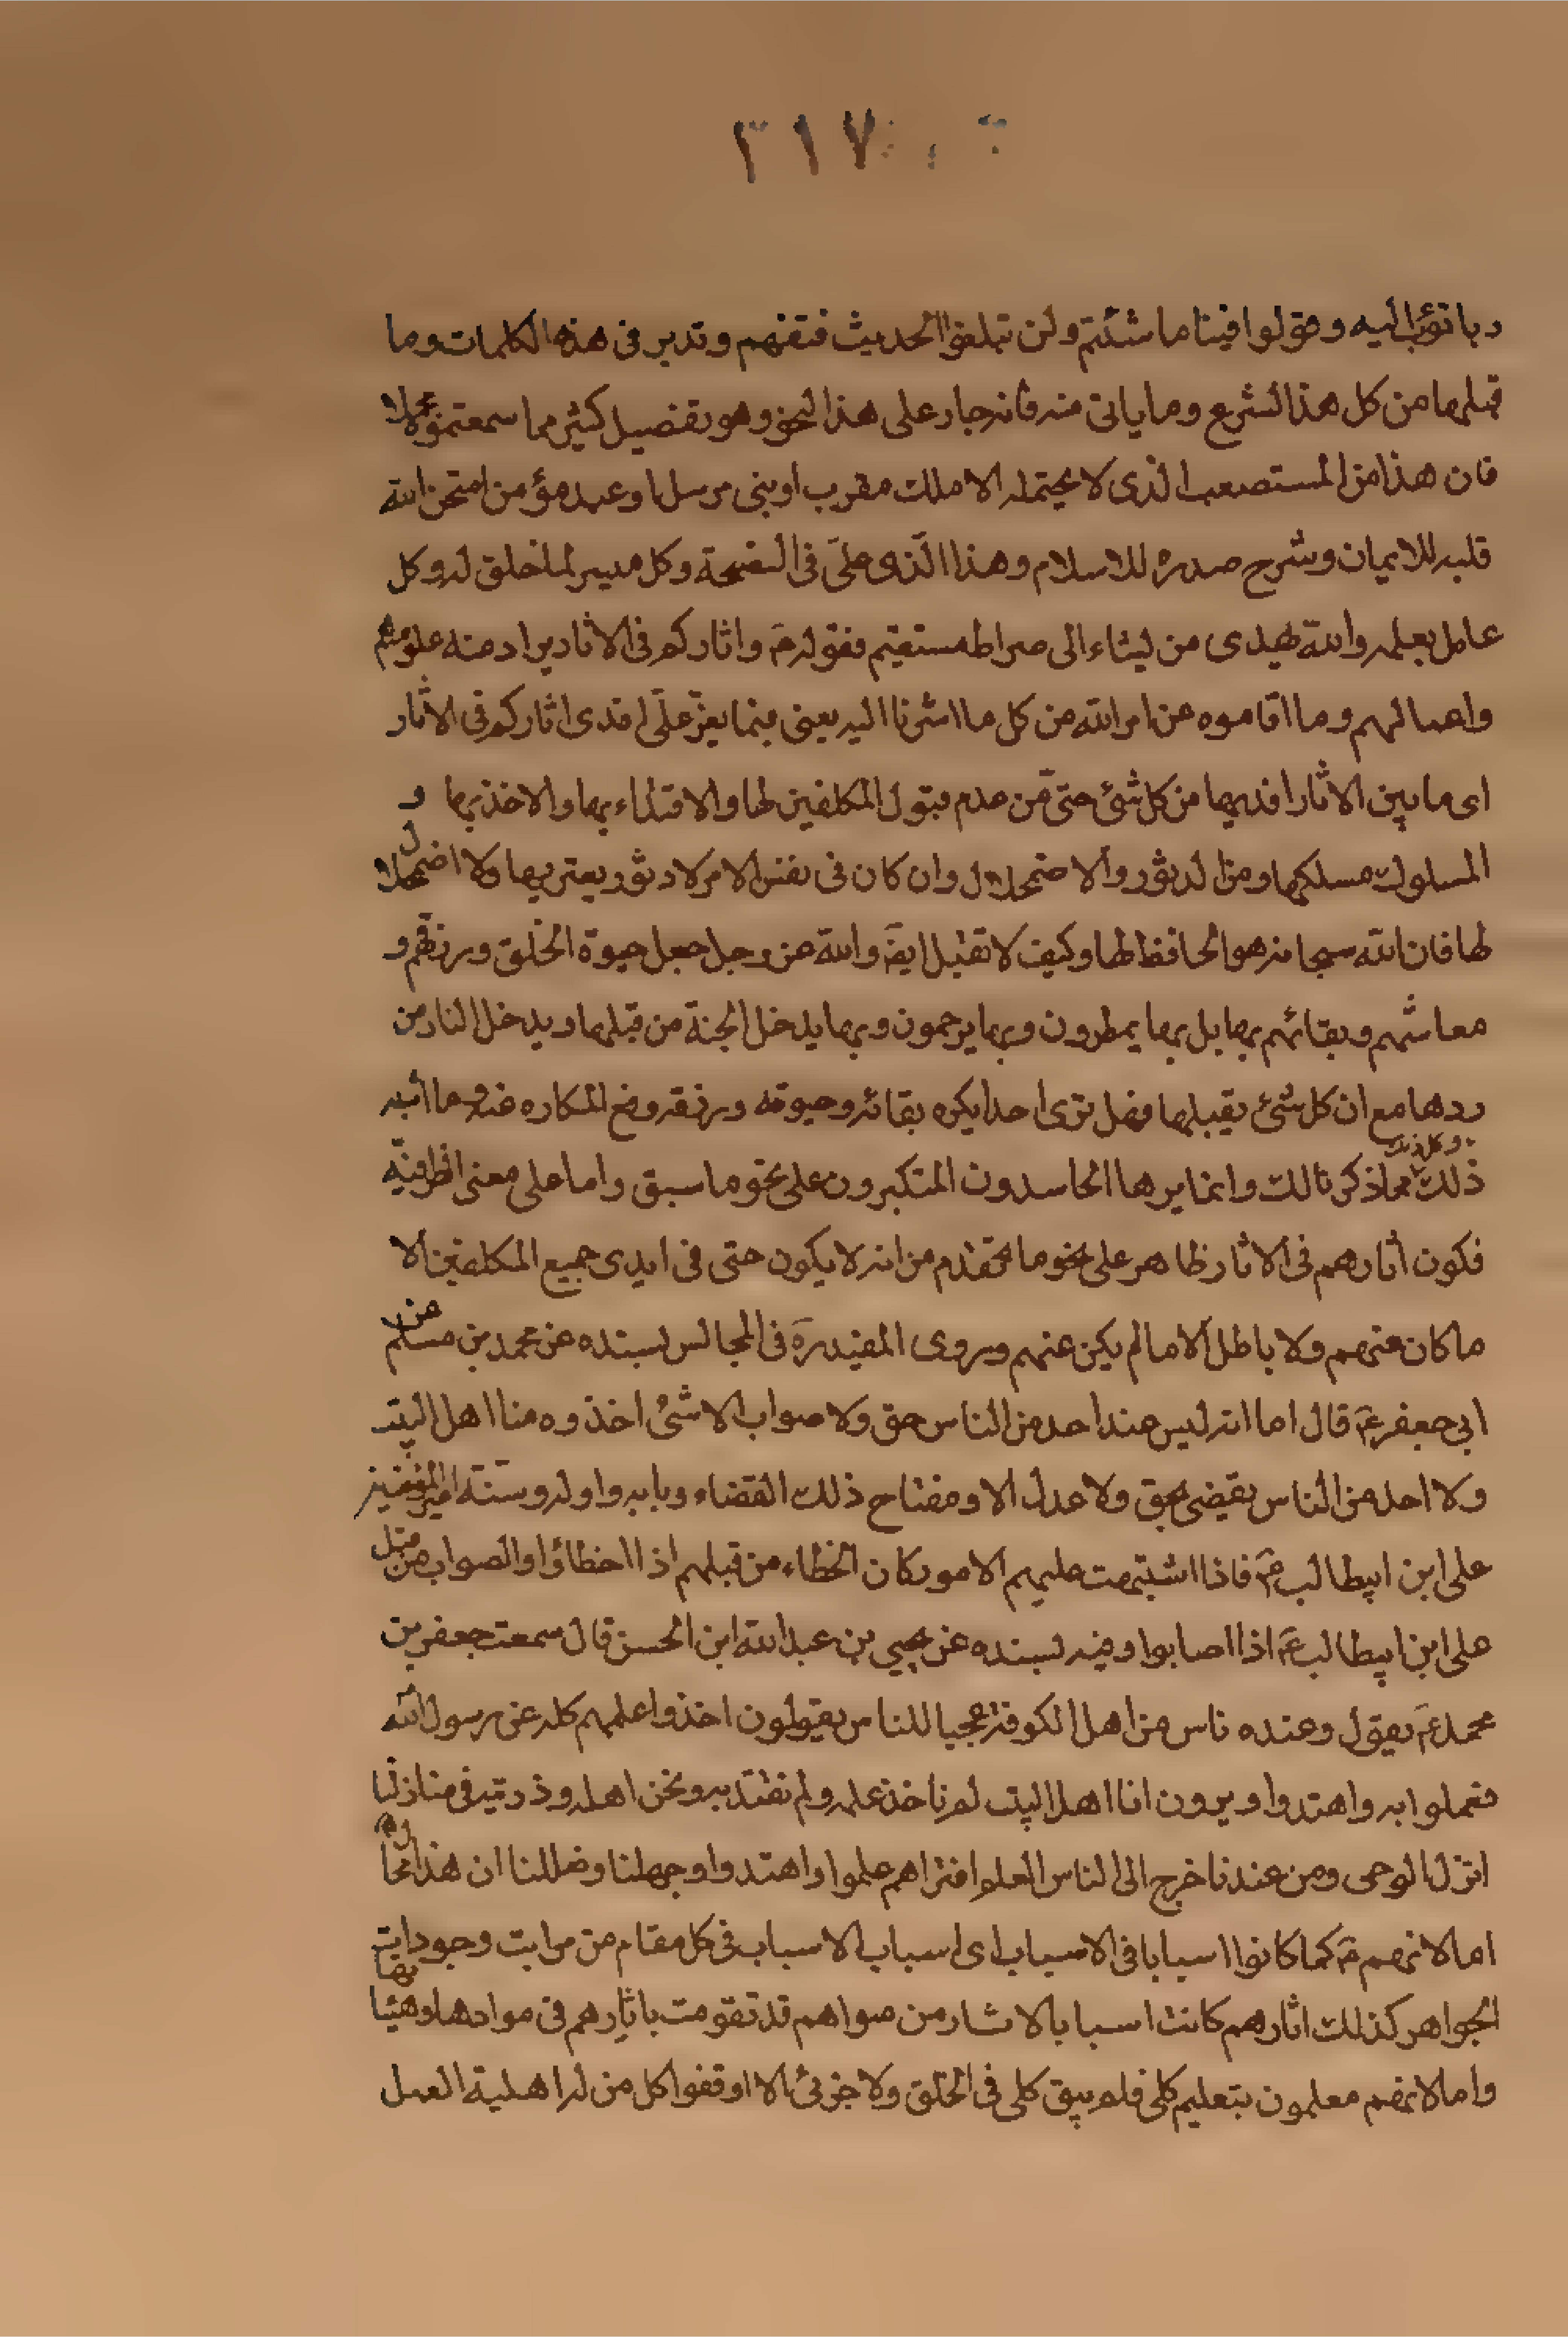 ٣١٧
ربا نؤب اليه وقولوا فينا ما شئتم ولن تبلغوا الحديث فتفهم وتدبر فى هذه الكلمات وما
قبلها من كل هذا الشرع وما ياتى منه فانه جار على هذا النحو وهو تفصيل كثير مما سمعتموه مجملا
فان هذا من المستصعب الذى لا يحتمله الا ملك مقرب او نبى مرسل او عبد مؤمن امتحن الله
قلبه للايمان وشرح صدره للاسلام وهذا الّذى علىّ فى النصيحة وكل ميسر لما خلق له وكل
عامل بعلمه والله يهدى من يشاء الى صراط مستقيم فقوله ع واثاركم فى الاثار يراد منه علومهم
واعمالهم وما اقاموه من امر الله من كل ما اشرنا اليه يعنى بينما يعزّ علىّ افدى اثاركم فى الاثار
اى ما بين الاثار افديها من كل شئ حتى من عدم قبول المكلفين لها والاقتداء بها والاخذ بها و
السلوك مسلكها ومن الدثور والاضمحلال وان كان فى نفس الامر لا دثور يعتريها ولا اضمحلال
لها فان الله سبحانه هو الحافظ لها وكيف لا تقبل ايضا والله عز وجل جعل حيوة الخلق ورزقهم و
معاشهم وبقائهم بها بل بها يمطرون وبها يرحمون وبها يدخل الجنة من قبلها ويدخل النار من
ردها مع ان كل شئ يقبلها فهل ترى احدا يكره بقائه وحيوته ورزقه ودفع المكاره عنه وما اشبه
ذلك وكل ذلك مما ذكرنا لك وانما يردها الحاسدون المتكبرون على نحو ما سبق واما على معنى الظرفيّه
فكون اثارهم فى الاثار ظاهر على نحو ما تقدم من انه لا يكون حق فى ايدى جميع المكلفين الا
ما كان عنهم ولا باطل الا ما لم يكن عنهم وروى المفيد ره فى المجالس بسنده عن محمد بن مسلم عن
ابى جعفر ع قال اما انه ليس عند احد من الناس حق ولا صواب الا شئ اخذوه منا اهل البيت
ولا احد من الناس يقضى بحق ولا عدل الا ومفتاح ذلك القضاء وبابه واوله وسنته امير المؤمنين
على ابن ابيطالب ع فاذا اشتبهت عليهم الامور كان الخطاء من قبلهم اذا اخطاؤا والصواب من قبل
على ابن ابيطالب ع اذا اصابوا وفيه بسنده عن يحيى بن عبدالله ابن الحسن قال سمعت جعفر بن
محمد ع يقول وعنده ناس من اهل الكوفة عجبا للناس يقولون اخذوا علمهم كله عن رسول الله
فعملوا به واهتدوا ويرون انا اهل البيت لم ناخذ علمه ولم نهتد به ونحن اهله وذريته فى منازلنا
انزل الوحى ومن عندنا خرج الى الناس العلم افتراهم علموا واهتدوا وجهلنا وضللنا ان هذا محال وهو
اما لانهم ع كما كانوا اسبابا فى الاسباب اى اسباب الاسباب فى كل مقام من مراتب وجوداتهم
الجواهر كذلك اثارهم كانت اسبابا بالاثار من سواهم قد تقومت باثارهم فى موادها وهيئاتها
واما لانهم معلمون بتعليم كلى فلم يبق كلى فى الخلق ولا جزئى الا اوقفوا كل من له اهلية العمل